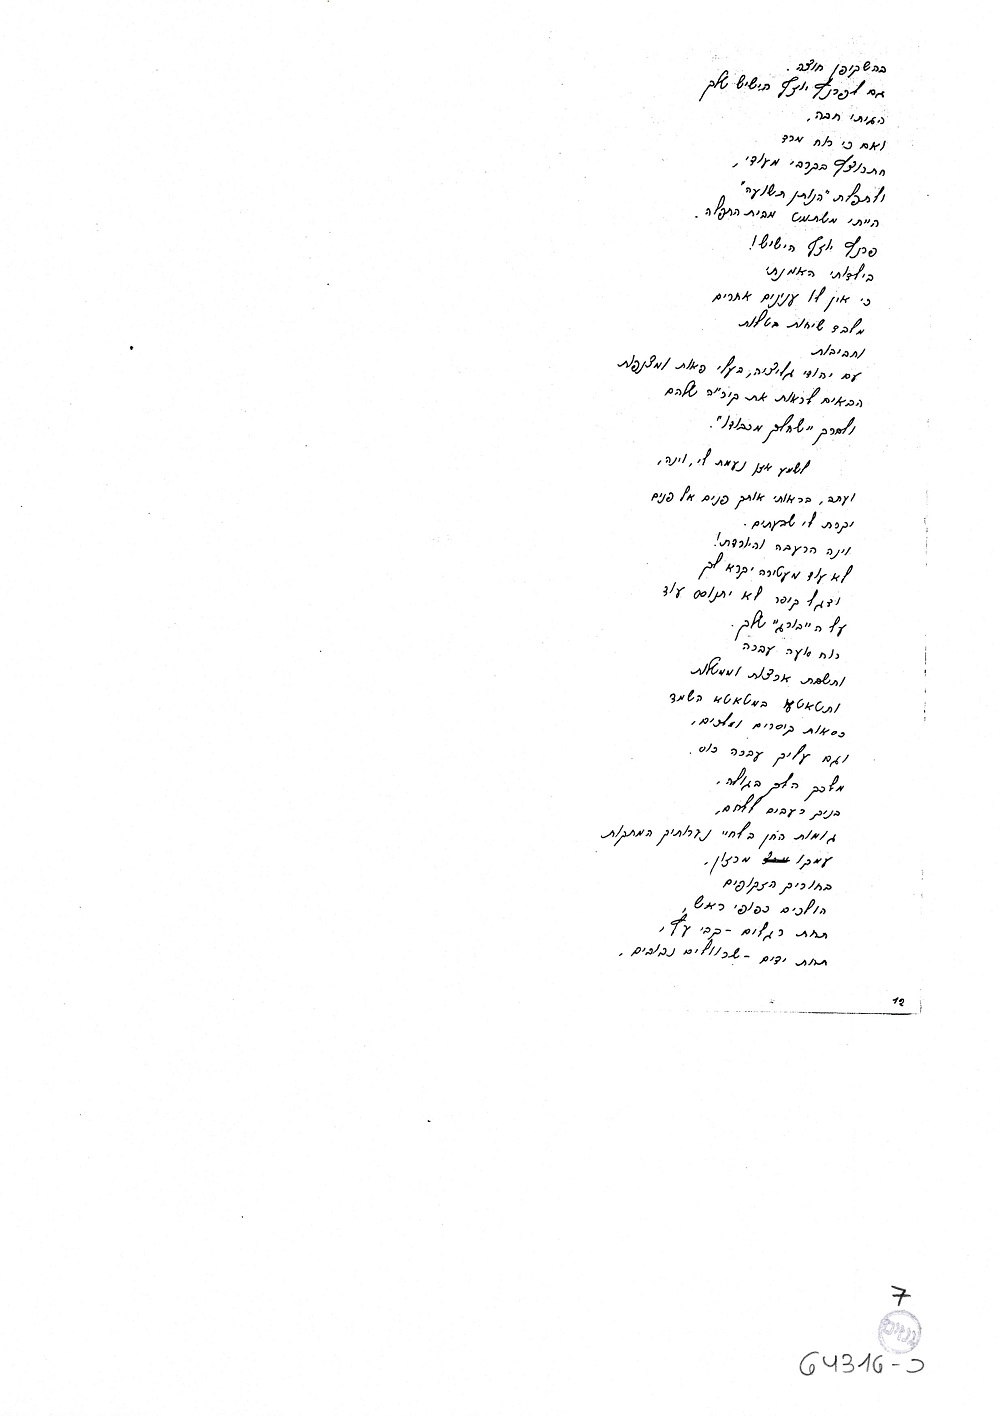 בהשקיפן חוצה.
גם לפרנץ יוזף הישיש שלך
הגיתי חבה,
ואם כי רוח מרד
התרוצץ בקרבי מעודי,
ולתפלת "הנותן תשועה"
הייתי משתמט מבית התפלה.
פרנץ יוזף הישיש!
בילדותי האמנתי
כי אין לו ענינים אחרים
מלבד שיחות בטלות
וחביבות
עם יהודי גליציה, בעלי פאות ומצנפות
הבאים לראות את קיר"ה שלהם
ולברך "שחלק מכבודו".
לשמע אזן נעמת לי, וינה,
ועתה, בראותי אותך פנים אל פנים
יקרת לי שבעתים.
וינה הרעבה והיורדת!
לא עוד מעטירה יקרא לך
ודגל קיסר לא יתנוסס עוד
על ה"בורג" שלך.
רוח סועה עברה
ותשמת ארצות וממשלות
ותטאטא במטאטא השמד
כסאות קיסרים ומלכים,
וגם עליך עברה כוס.
מלכך הלך בגולה,
בניך רעבים ללחם,
גומות החן בלחיי נערותיך המתקות
עמקו מרזון,
בחוריך הזקופים
הולכים כפופי ראש,
תחת רגלים - קבי עץ,
תחת ידים - שרוולים נבובים,
12
7
גנזים
64316-כ